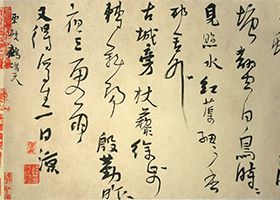 塘翻空白鳥時時
見照水紅蕖細細香
邨舍外
古城旁杖藜徐步
轉斜陽 殷勤昨
夜三更雨
又得浮生一日涼
鷓鴣天